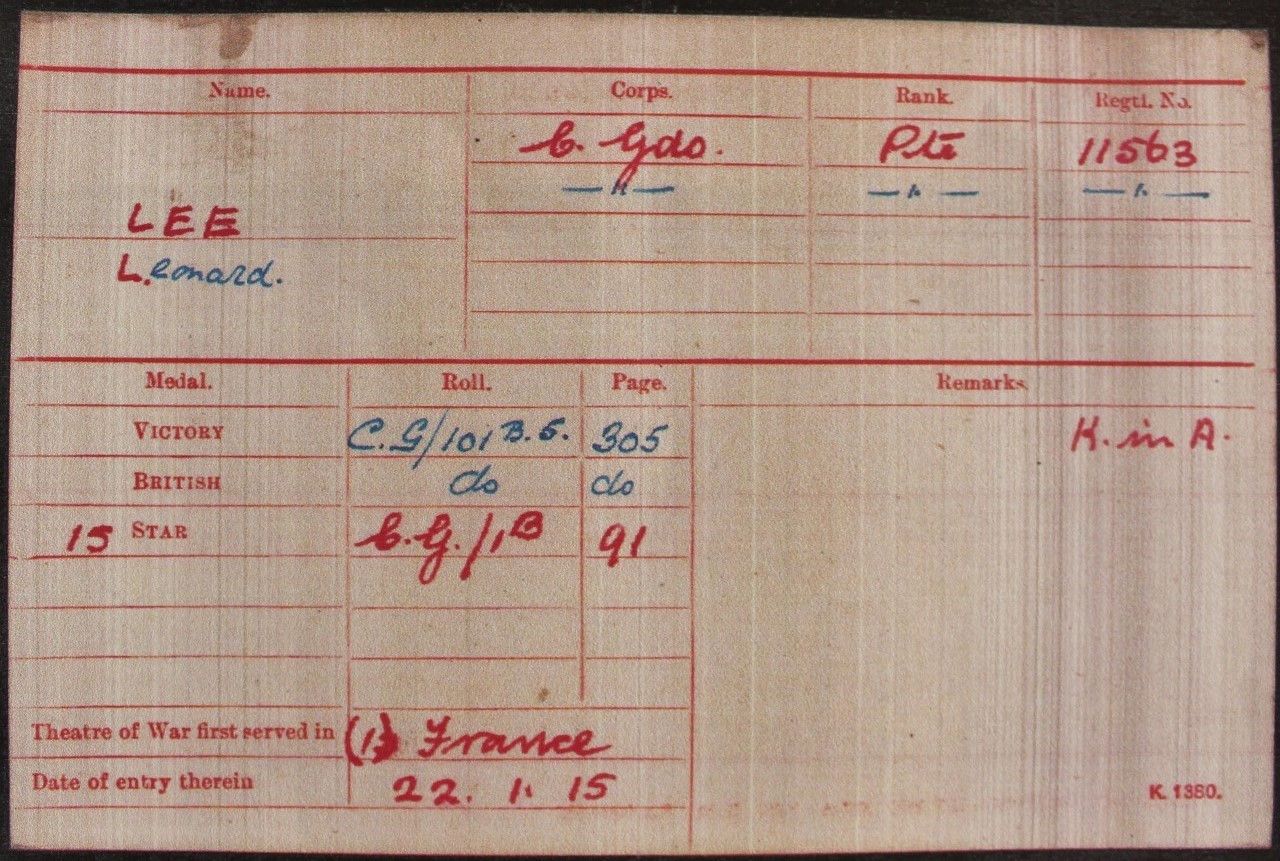 Name. Corps. Rank. Regtl. No.
C. Gds. Pte 11563
—"— —"— —"—
LEE
L.eonard.
Medal. Roll. Page. Remarks.
VICTORY C.G/101 B.5. 305 K. in A.
BRITISH do do
15 STAR C.G./1B 91
Theatre of War first served in (1) France
Date of entry therein 22. 1. 15
K. 1380.